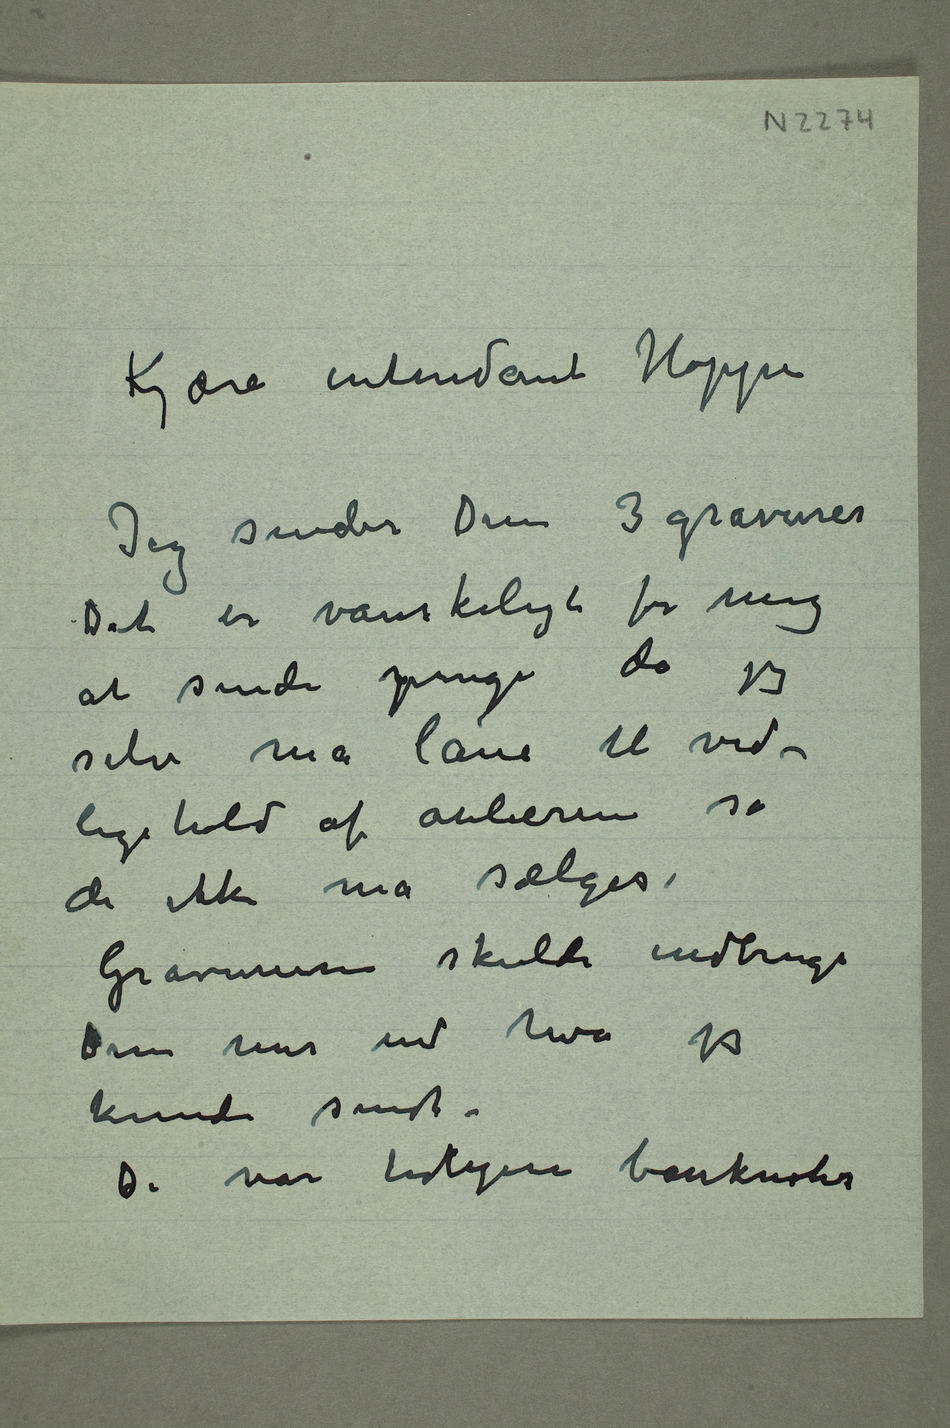 N 2274
Kjære intendant Hoppe
Jeg sender Dem 3 gravurer
Det er vanskeligt for meg
at sende penge da jeg
selv må låne til ved-
ligehold af ateliererne så
de ikke må sælges.
Gravurerne skulde indbringe
Dem mer end hva jeg
kunde sendt.
De var tidligere banknoter